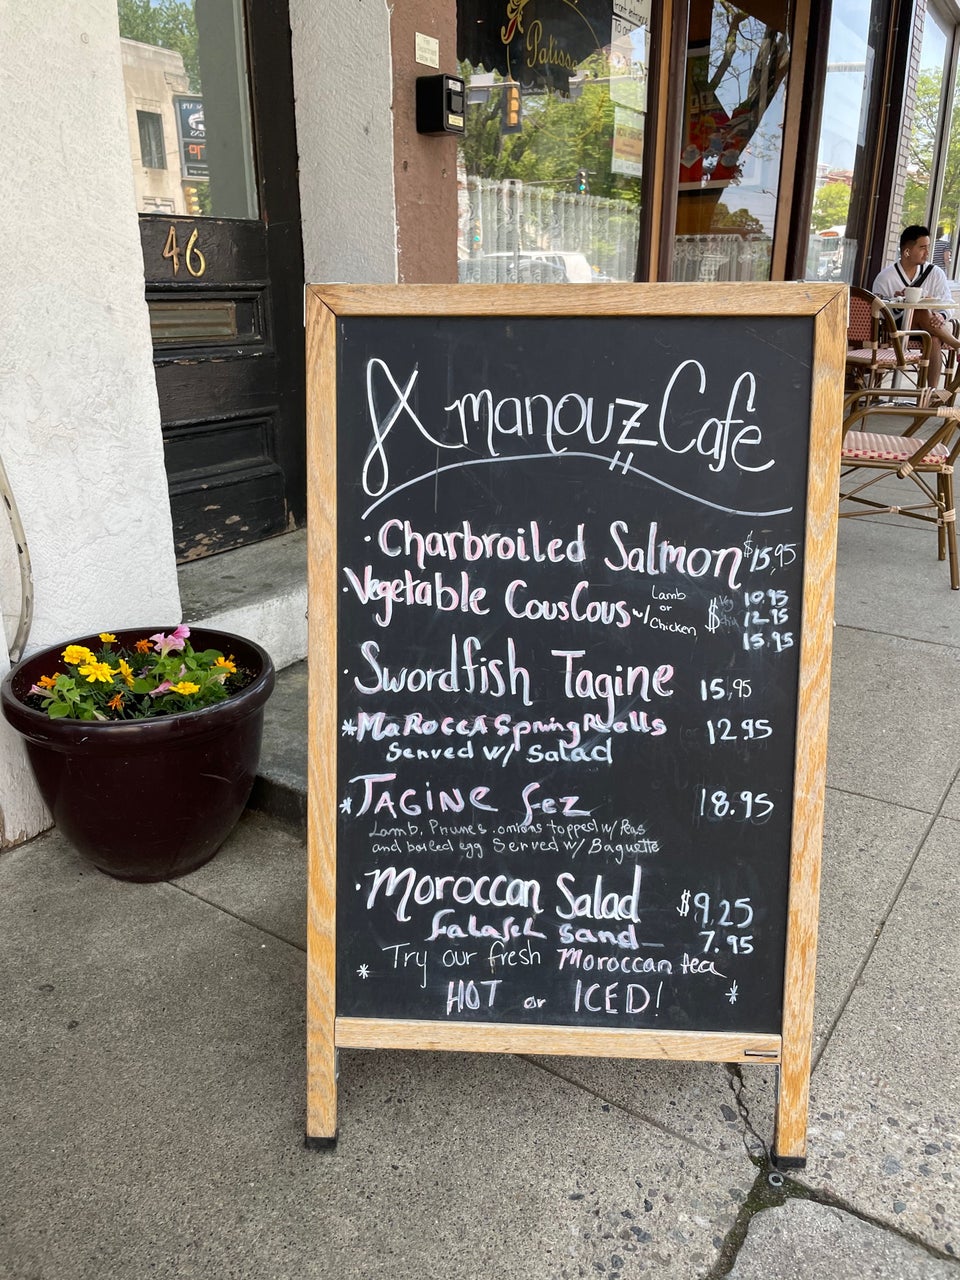 46
Patisse
Amanouz Cafe
· Charbroiled Salmon $15.95
· Vegetable CousCous w/ Lamb or Chicken $ Veg 10.95
12.95
15.95
· Swordfish Tagine 15.95
* MaRoccA Spring Rolls 12.95
Served w/ Salad
* TAGINE fez 18.95
Lamb, Prunes, onions topped w/ Peas
and boiled egg Served w/ Baguette
· Moroccan Salad $9.25
falafel sand 7.95
* Try our fresh Moroccan tea
HOT or ICED! *